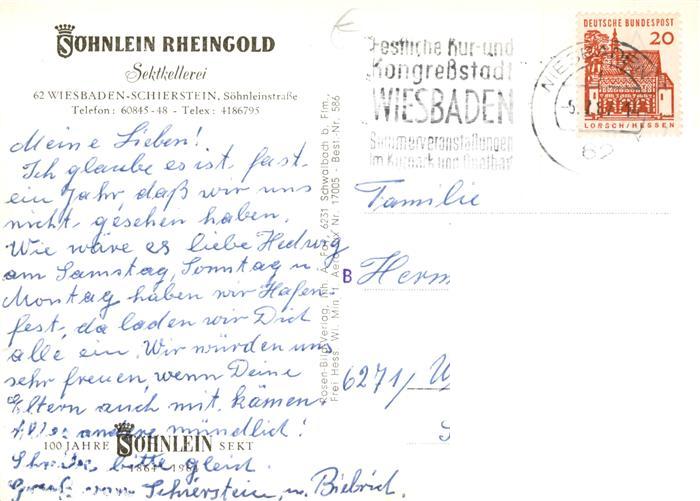 SÖHNLEIN RHEINGOLD
Sektkellerei
62 WIESBADEN-SCHIERSTEIN, Söhnleinstraße
Telefon: 60845-48 - Telex: 4186795
Meine Lieben!
Ich glaube es ist fast
ein Jahr, daß wir uns
nicht gesehen haben.
Wie wäre es liebe Hedwig
am Samstag, Sonntag u
Montag haben wir Hafen-
fest, da laden wir Dich
alle ein. Wir würden uns
sehr freuen, wenn Deine
Eltern auch mit kämen.
Alles andere mündlich!
100 JAHRE SÖHNLEIN SEKT
1864
bitte gleich.
Schierstein, u. Biebrich.
Rosen-Bild-Verlag, Inh. A. 6231 Schwalbach b. Ffm.
Frei Hess. Wi. Min. Nr. 17005 - Best-Nr. 586
Festliche Kur- und
Kongreßstadt
WIESBADEN
Sommerveranstaltungen
im Kurpark und
WIESBADEN
62
DEUTSCHE BUNDESPOST
20
LORSCH/HESSEN
Familie
B Herm
6271/ W